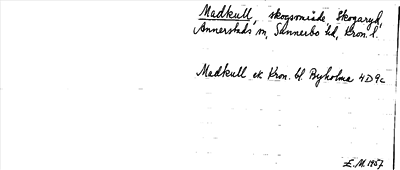 Madkull, skogsområde Skogaryd,
Annerstads sn, Sunnerbo hd, Kron. l.
Madkull ek Kron. bl. Byholma 4D9c
E.M. 1957